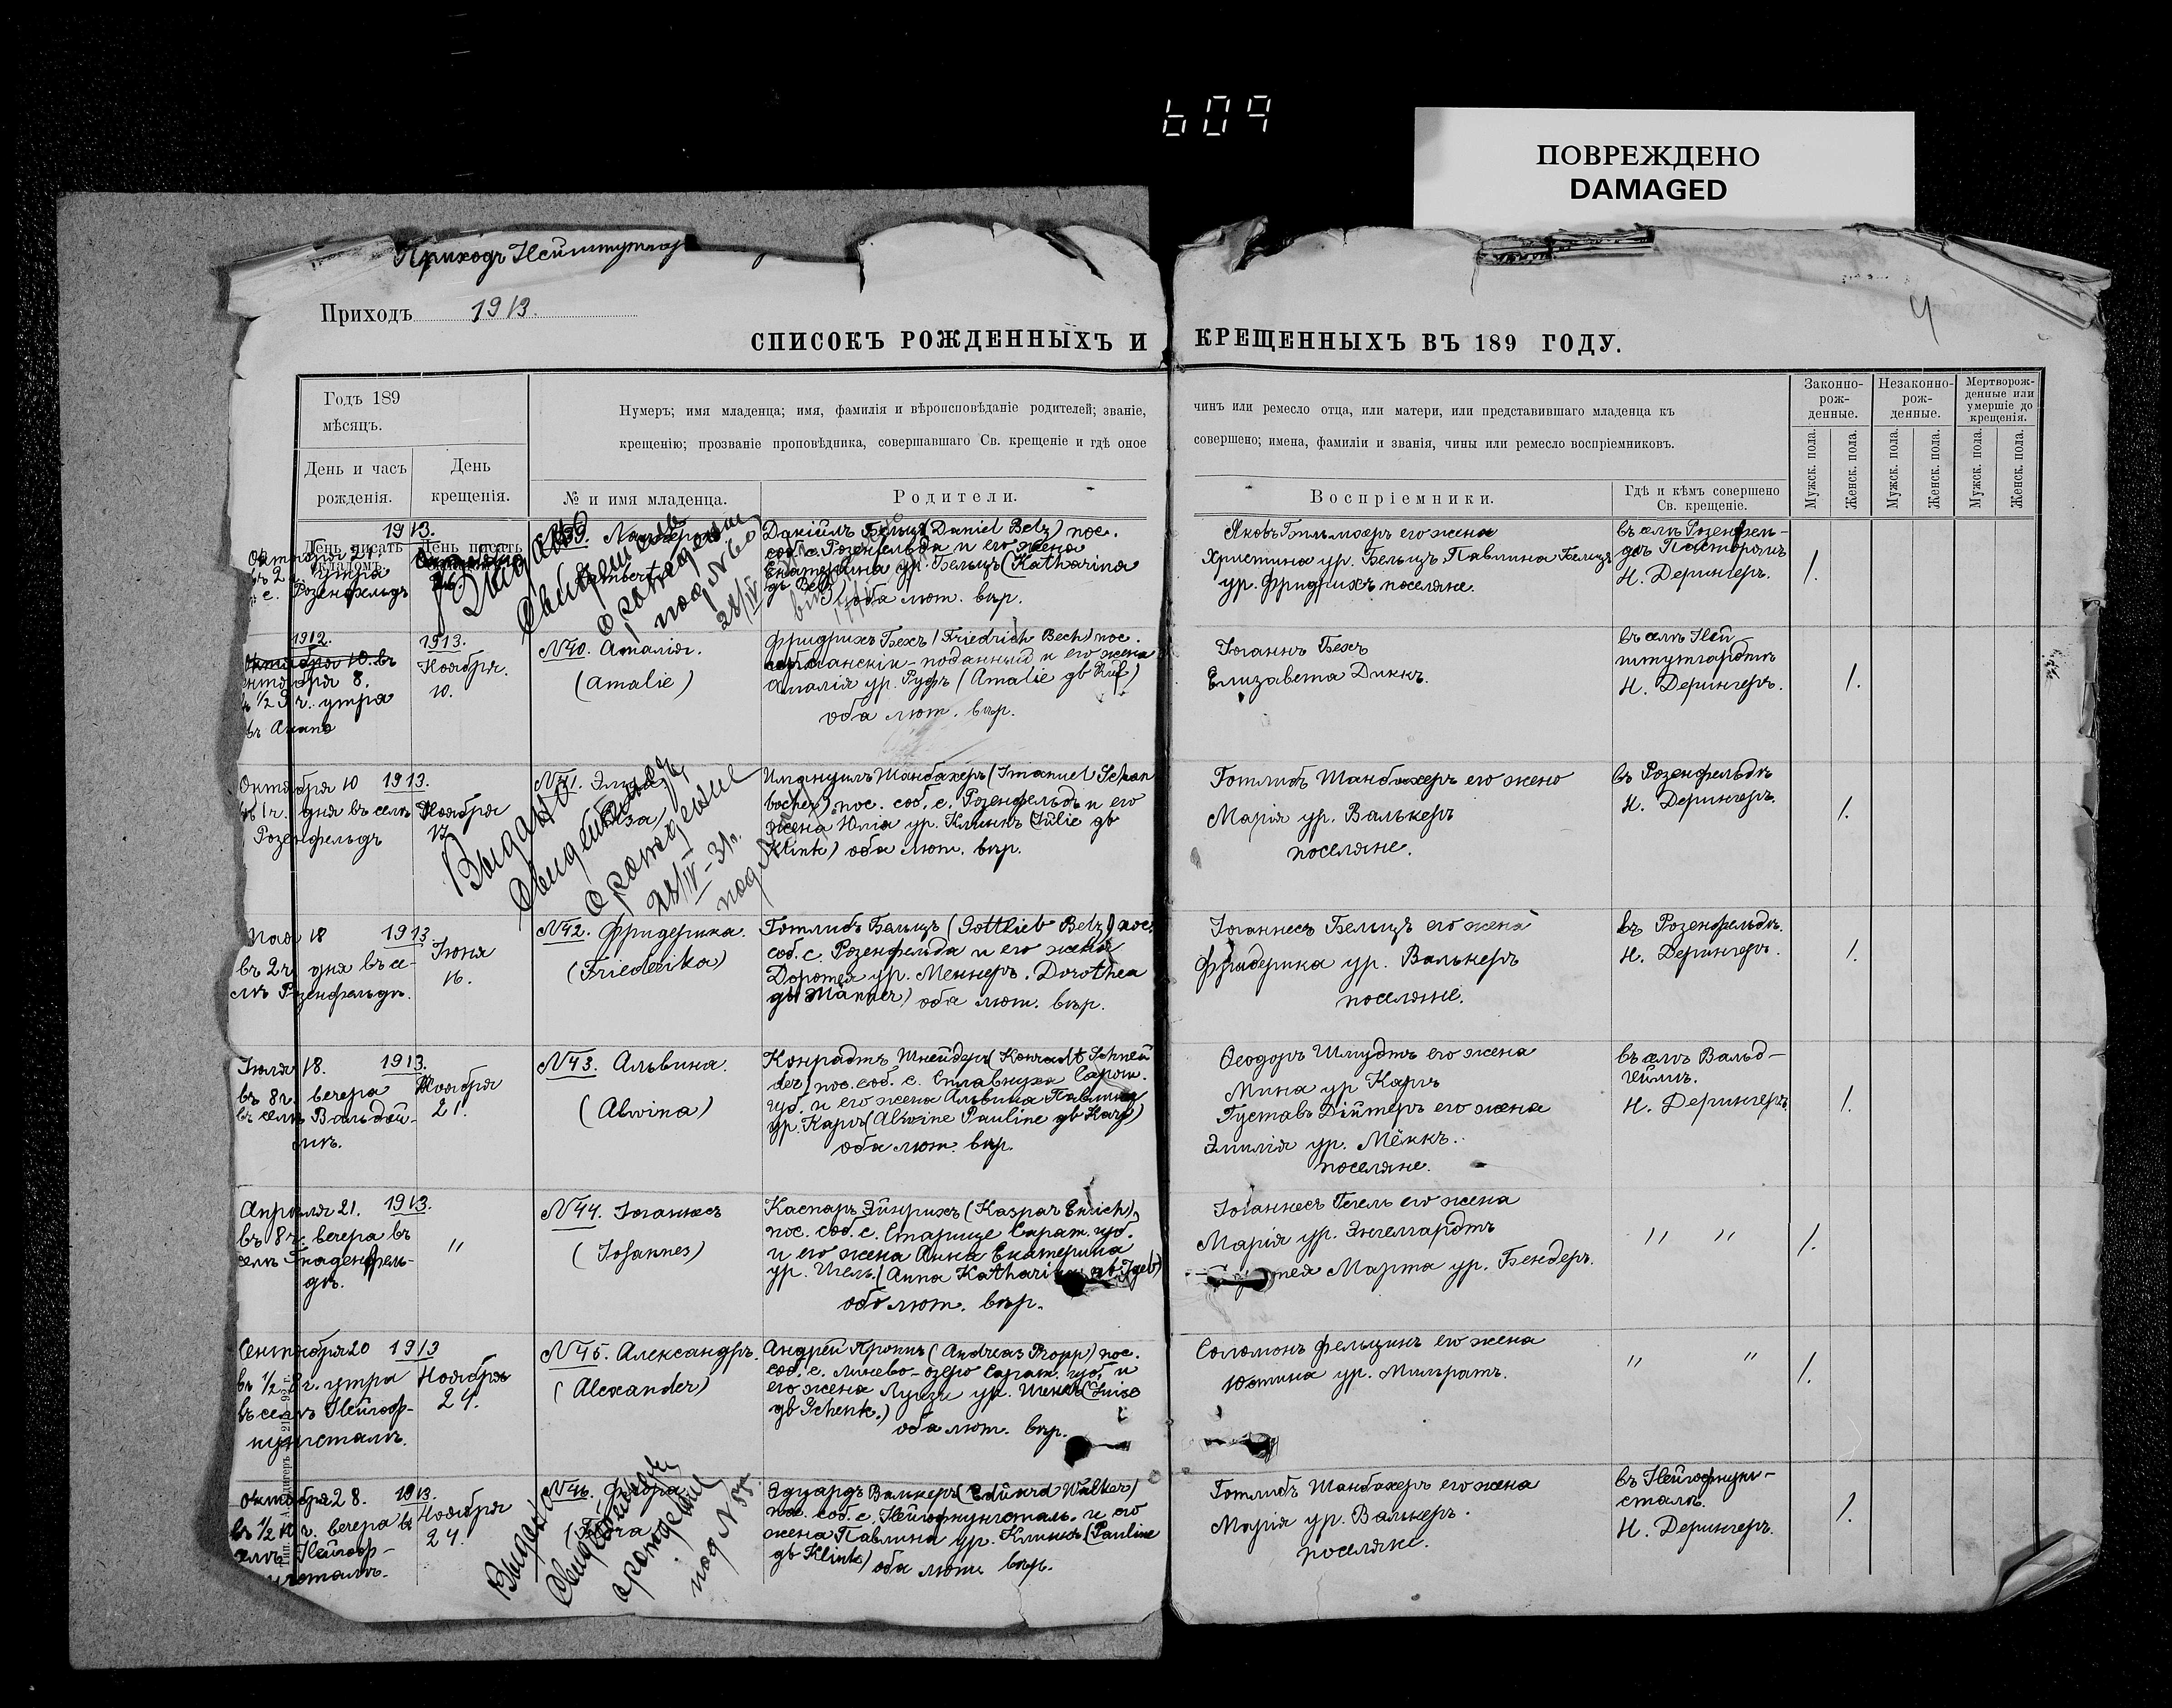 609
ПОВРЕЖДЕНО
DAMAGED
Приходъ Нейштутгар
Приходъ 1913.
4
СПИСОКЪ РОЖДЕННЫХЪ И КРЕЩЕННЫХЪ ВЪ 189 ГОДУ.
Годъ 189
мѣсяцъ.
День и часъ
рожденія.
День
крещенія.
Нумеръ; имя младенца; имя, фамилія и вѣроисповѣданіе родителей; званіе, чинъ или ремесло отца, или матери, или представившаго младенца къ
крещенію; прозваніе проповѣдника, совершавшаго Св. крещеніе и гдѣ оное совершено; имена, фамиліи и званія, чины или ремесло воспріемниковъ.
№ и имя младенца.
Родители.
Воспріемники.
Гдѣ и кѣмъ совершено
Св. крещеніе.
Законно-
рож-
денные.
Незаконно-
рож-
денные.
Мертворож-
денные или
умершіе до
крещенія.
Мужск. пола.
Женск. пола.
Мужск. пола.
Женск. пола.
Мужск. пола.
Женск. пола.
1913.
День писать
складомъ.
День писать
Октября 21.
утра
с. Розенфельдъ
Даніилъ Бельцъ (Daniel Belz) пос.
соб. с. Розенфельда и его жена
Екатерина ур. Бельцъ (Katharina
gb Belz) оба лют. вѣр.
Яковъ его жена
Христина ур. Бельцъ Павлина Бельцъ
ур. Фридрихъ поселяне.
въ селѣ Розенфель-
дѣ Пасторомъ
Н. Дерингеръ.
1.
свидетельс
о рождении
под № 60
28/IV
1912.
Октября 10. въ
8.
1/2 3 ч. утра
въ Анапѣ
1913.
Ноября.
10.
№40. Амалія.
(Amalie)
Фридрихъ Бехъ (Friedrich Bech) пос.
германскій-подданный и его жена
Амалія ур. Руфъ (Amalie gb Ruf)
оба лют. вѣр.
Іоганнъ Бехъ
Елизавета Диккъ.
въ селѣ Ней
штутгардтѣ
Н. Дерингеръ.
1.
Октября 10 1913.
въ 1 ч. дня въ селѣ
Розенфельдъ
Ноября
17
№41.
Выдано
свидетельс
о рождение
28/IV-31г.
под №
Имануилъ Шанбахеръ (Imanuel Schan
bacher) пос. соб. с. Розенфельдъ и его
жена Юлія ур. Клинкъ (Julie gb
Klink) оба лют. вѣр.
Готлибъ Шанбахеръ его жена
Марія ур. Валькеръ
поселяне.
въ Розенфельдѣ
Н. Дерингеръ.
1.
Мая 18 1913.
въ 2 ч. дня въ се-
лѣ Розенфельдѣ.
Іюня
16.
№42. Фридерика.
(Friederika)
Готлибъ Бельцъ (Gottlieb Belz) пос.
соб. с. Розенфельда и его жена
Доротея ур. Меннеръ. Dorothea
gb Männer) оба лют. вѣр.
Іоганнесъ Бельцъ его жена
Фридерика ур. Валькеръ
поселяне.
въ Розенфельдѣ.
Н. Дерингеръ.
1.
Іюля 18. 1913.
въ 8 ч. вечера
въ селѣ Вальдгей-
мѣ.
Ноября
21.
№43. Альвина.
(Alwina)
Конрадтъ Шнейдеръ (Konradt Schnei
der) пос. соб. с. Сплавнуха Сарат.
губ. и его жена Альвина Павлина
ур. Карпъ (Alwine Pauline gb Karp)
оба лют. вѣр.
Ѳеодоръ Шмудтъ его жена
Мина ур. Карпъ
Густавъ Дійтеръ его жена
Эмилія ур. Мёккъ.
поселяне.
въ селѣ Вальд-
геймѣ.
Н. Дерингеръ.
1.
Апрѣля 21. 1913.
въ 8 ч. вечера въ
селѣ Гнаденфель-
дѣ.
"
№44. Іоганнесъ
(Johannes)
Каспаръ Эйнрихъ (Kaspar Enrich)
пос. соб. с. Старице Сарат. губ.
и его жена Анна Екатерина
ур. Игель. (Anna Katharina gb Igel)
оба лют. вѣр.
Іоганнесъ Гегель его жена
Марія ур. Энгелгардтъ
Марта ур. Бендеръ.
" "
1.
Сентября 20 1913
въ 1/2 8 ч. утра
въ селѣ Нейгоф-
нунгсталѣ.
Ноября
24.
№45. Александръ.
(Alexander)
Андрей Проппъ (Andreas Propp) пос.
соб. с. Линево-озеро Сарат. губ. и
его жена Луизе ур. Шенкъ (Luise
gb Schenk.)
оба лют. вѣр.
Соломонъ Фельцинъ его жена
Юстина ур. Мильратъ.
" "
1.
Октября 28. 1913.
въ 1/2 ч. вечера въ
селѣ Нейгоф-
нунгсталѣ.
Ноября
24.
№46.
Выдано
свидетельс
о рождении
под № 55
Эдуардъ Валкеръ (Eduard Walker)
пос. соб. с. Нейгофнунгсталь. и его
жена Павлина ур. Клинкъ (Pauline
gb Klink) оба лют. вѣр.
Готлибъ Шанбахеръ его жена
Марія ур. Валькеръ.
поселяне.
въ Нейгофнунг-
сталѣ.
Н. Дерингеръ.
1.